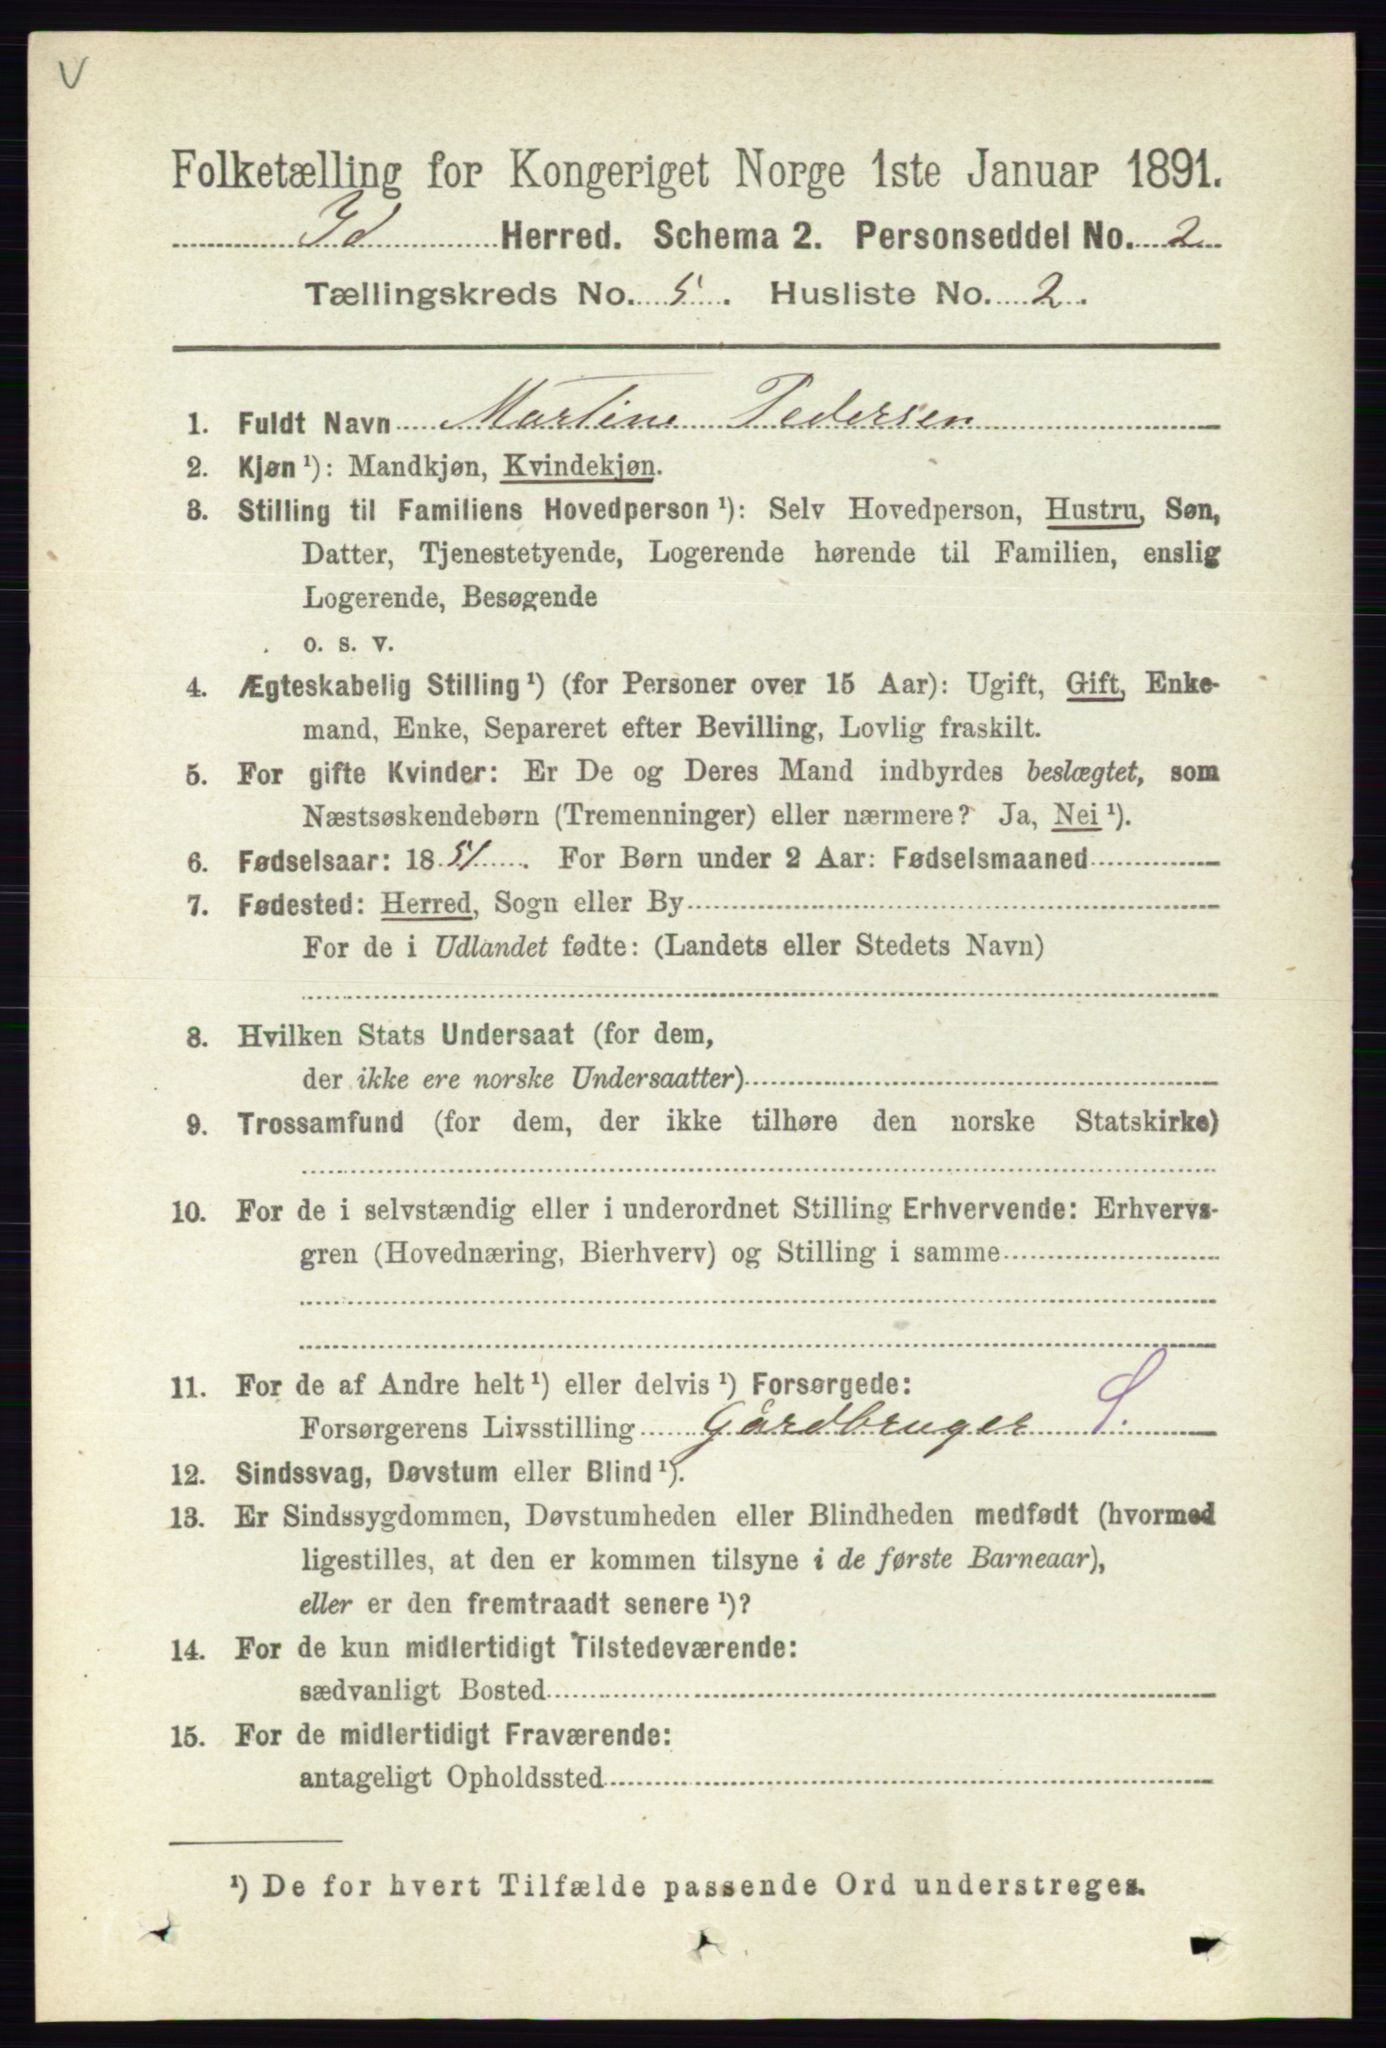 V
Folketælling for Kongeriget Norge 1ste Januar 1891.
Id Herred. Schema 2. Personseddel No. 2
Tællingskreds No. 5. Husliste No. 2.
1. Fuldt Navn Martine Pedersen
2. Kjøn ¹): Mandkjøn, Kvindekjøn.
3. Stilling til Familiens Hovedperson ¹): Selv Hovedperson, Hustru, Søn,
Datter, Tjenestetyende, Logerende hørende til Familien, enslig
Logerende, Besøgende
o. s. v.
4. Ægteskabelig Stilling ¹) (for Personer over 15 Aar): Ugift, Gift, Enke-
mand, Enke, Separeret efter Bevilling, Lovlig fraskilt.
5. For gifte Kvinder: Er De og Deres Mand indbyrdes beslægtet, som
Næstsøskendebørn (Tremenninger) eller nærmere? Ja, Nei ¹).
6. Fødselsaar: 1851. For Børn under 2 Aar: Fødselsmaaned
7. Fødested: Herred, Sogn eller By
For de i Udlandet fødte: (Landets eller Stedets Navn)
8. Hvilken Stats Undersaat (for dem,
der ikke ere norske Undersaatter)
9. Trossamfund (for dem, der ikke tilhøre den norske Statskirke)
10. For de i selvstændig eller i underordnet Stilling Erhvervende: Erhvervs-
gren (Hovednæring, Bierhverv) og Stilling i samme
11. For de af Andre helt ¹) eller delvis ¹) Forsørgede:
Forsørgerens Livsstilling Gårdbruger S.
12. Sindssvag, Døvstum eller Blind ¹).
13. Er Sindssygdommen, Døvstumheden eller Blindheden medfødt (hvormed
ligestilles, at den er kommen tilsyne i de første Barneaar),
eller er den fremtraadt senere ¹)?
14. For de kun midlertidigt Tilstedeværende:
sædvanligt Bosted
15. For de midlertidigt Fraværende:
antageligt Opholdssted
¹) De for hvert Tilfælde passende Ord understreges.